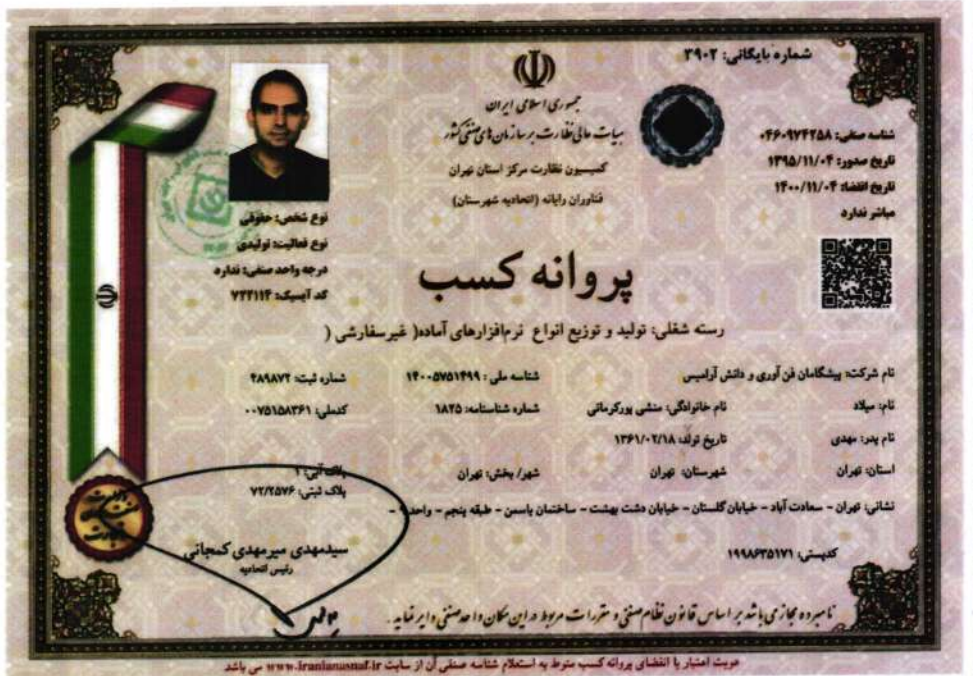 شماره بایگانی: ۳۹۰۲
جمهوری اسلامی ایران
هیات عالی نظارت بر سازمان های صنفی کشور
کمیسیون نظارت مرکز استان تهران
فناوران رایانه (اتحادیه شهرستان)
شناسه صنفی: ۰۴۶۰۹۷۴۲۵۸
تاریخ صدور: ۱۳۹۵/۱۱/۰۴
تاریخ انقضا: ۱۴۰۰/۱۱/۰۴
مباشر ندارد
نوع شخص: حقوقی
نوع فعالیت: تولیدی
درجه واحد صنفی: ندارد
کد آیسیک: ۷۲۲۱۱۴
پروانه کسب
رسته شغلی: تولید و توزیع انواع نرم‌افزارهای آماده( غیرسفارشی (
نام شرکت: پیشگامان فن آوری و دانش آرامیس شناسه ملی : ۱۴۰۰۵۷۵۱۴۹۹ شماره ثبت: ۴۸۹۸۷۲
نام: میلاد نام خانوادگی: منشی پورکرمانی شماره شناسنامه: ۱۸۲۵ کدملی: ۰۰۷۵۱۵۸۳۶۱
نام پدر: مهدی تاریخ تولد: ۱۳۶۱/۰۲/۱۸
استان: تهران شهرستان: تهران شهر/ بخش: تهران پلاک آبی: ۲
پلاک ثبتی: ۷۲/۲۵۷۶
نشانی: تهران - سعادت آباد - خیابان گلستان - خیابان دشت بهشت - ساختمان یاسمن - طبقه پنجم - واحد
کدپستی: ۱۹۹۸۶۳۵۱۷۱
سیدمهدی میرمهدی کمجانی
رئیس اتحادیه
نامبرده مجاز می باشد بر اساس قانون نظام صنفی و مقررات مربوط در این مکان واحد صنفی دایر نماید.
هویت اعتبار یا انقضای پروانه کسب منوط به استعلام شناسه صنفی آن از سایت www.iranianasnaf.ir می باشد